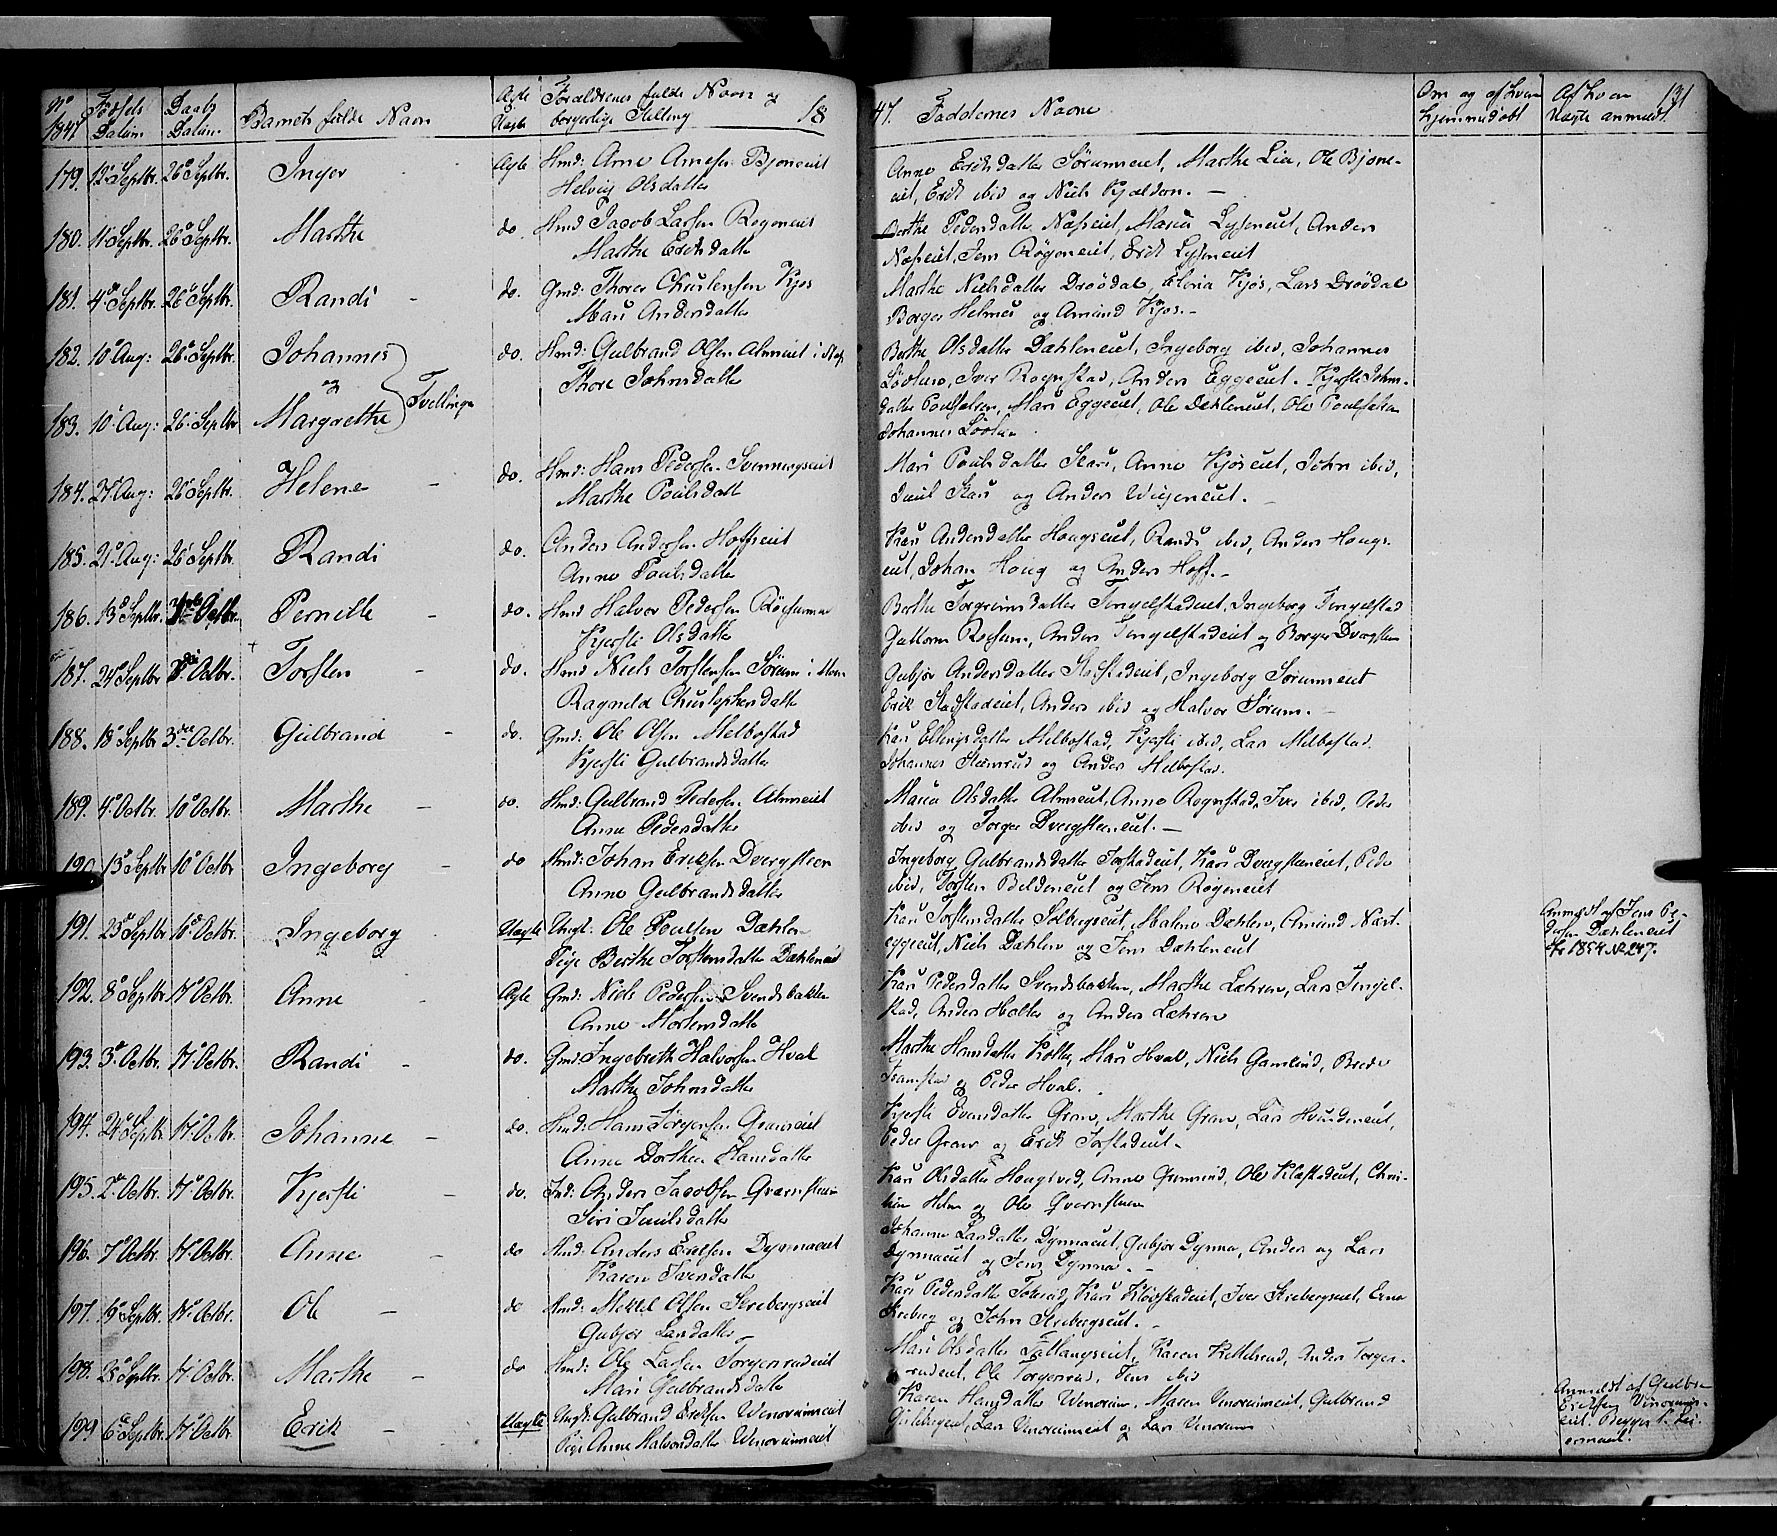 No 1847. Fødsels Datum Daabs Datum. Barnets fulde Navn Ægte Uægte Forældrenes fulde Navn og borgerlige Stilling 18
47. Faddernes Navne Om og af hvem hjemmedøbt Af hvem Uægte anmeldt 131
179. 12 Septbr. 26 Septbr. Inger Ægte Hmd: Arne Arnesen Bjoneeiet
Helvig Olsdatter
Anne Eriksdatter Sørumeiet, Marthe Lia, Ole Bjone-
eiet, Erik ibid og Niels Kjælderen. -
180. 11 Septbr. 26 Septbr. Marthe do. Hmd Jacob Larsen Rogneeiet
Marthe Eriksdatter
Berthe Pedersdatter Næseiet, Maria Lyseneiet, Anders
Næseiet, Jens Røgeneiet, Erik Lyseneiet
181. 4 Septbr. 26 Septbr. Randi - do. Gmd: Thorer Christensen Kjos
Mari Andersdatter
Marthe Nielsdatter Drøvdal, Maria Kjos, Lars Drøvdal
Borger Helmei og Amund Kjos. -
182. 10 Aug: 26 Septbr. Johannes do. Hmd: Gulbrand Olsen Almeiet i
og Tvillinger
Thore Johnsdatter
183. 10 Aug: 26 Septbr. Margrethe
Berthe Olsdatter Dæhleneiet, Ingeborg ibid, Johannes
Løvlien, Iver Rognstad, Anders Eggeeiet. Kjersti Johns-
datter Poulsælen, Mari Eggeeiet, Ole Dæhleneiet, Ole Poulsælen
Johannes Løvlien
184. 27 Aug: 26 Septbr. Helene - do. Hmd: Hans Pedersen Svenningseiet
Marthe Poulsdatter
Mari Poulsdatter Skari, Anne Kjoseiet, John ibid,
Skari og Anders Wigeneiet. -
185. 21 Aug: 26 Septbr. Randi do. Anders Andersen Hoffseiet
Anne Poulsdatter
Kari Andersdatter Hougseiet, Randi ibid, Anders Hougs-
eiet, Johan Houg og Anders Hoff. -
186. 13 Septbr. Octbr. Pernille - do. Hmd Halvor Pedersen
Kjersti Olsdatter
Berthe Torgrimsdatter Tingelstadeiet, Ingeborg Tingelstad
Guttorm, Anders Tingelstadeiet og Borger Dvergsten
187. 24 Septbr. Octbr. Torsten - do. Hmd Niels Torstensen Sørum i
Ragnild Christophersdatter
Gubjør Andersdatter Stadstadeiet, Ingeborg Sørumeiet
Erik Stadstadeiet, Anders ibid og Halvor Sørum. -
188. 18 Septbr. 3die Octbr. Gulbrand - do. Gmd: Ole Olsen Melbostad
Kjersti Gulbrandsdatter
Kari Ellingsdatter Melbostad, Kjersti ibid, Lars Melbostad.
Johannes og Anders Melbostad.
189. 4 Octbr. 10 Octbr. Marthe - do. Hmd: Gulbrand Pedersen Almeiet
Anne Pedersdatter
Maria Olsdatter Almeiet, Anne Rognstad, Iver ibid, Peder
ibid og Torger Dvergsteneiet. -
190 13 Septbr 10 Octbr. Ingeborg - do Hmd: Johan Eriksen Dvergsteen
Anne Gulbrandsdatter
Ingeborg Gulbrandsdatter, Kari Dvergsteneiet, Peder
ibid, Torsten Beldeneiet og Jens Røgeneiet
191. 23 Septbr 10 Octbr. Ingeborg Uægte Ungk: Ole Poulsen Dæhlen
Pige Berthe Torstensdatter Dæhleneiet
Kari Torstensdatter Solbergseiet, Malene Dæhlen, Amund Nord-
eggeeiet, Niels Dæhlen og Jens Dæhleneiet
Anmeldt af Jens Pe-
dersen Dæhleneiet
1854 No 247.
192. 8 Septbr. 17 Octbr. Anne - Ægte Gmd: Niels Pedersen Svendsbakken
Anne Mortensdatter
Kari Pedersdatter Svendsbakken, Marthe Læhren, Lars Tingel-
stad, Anders Holter og Anders Læhren
193. 3 Octbr. 17 Octbr. Randi - do. Gmd: Ingebreth Halvorsen Hval
Marthe Johnsdatter
Marthe Hansdatter, Mari Hval, Niels Gamlind, Brede
Framstad og Peder Hval.
194. 24 Septbr 17 Octbr. Johanne - do. Hmd: Hans Jørgensen Graneiet
Anne Dorthea Hansdatter
Kjersti Evensdatter Gran, Marthe Gran, Lars Hvindeneiet,
Peder Gran og Erik. -
195. 2 Octbr. 17 Octbr. Kjersti - do. Ind: Anders Jacobsen Qvernsteen
Siri Juulsdatter
Kari Olsdatter Hougtved, Anne, Ole, Chri-
og Ole Qvernsteen
196. 7 Octbr. 17 Octbr. Anne - do Hmd: Anders Eriksen Dynnaeiet
Karen Iversdatter
Johanne Larsdatter Dynnaeiet, Gubjør Dynna, Anders og Lars
Dynnaeiet og Jens Dynna. -
197. 19 Septbr. 17 Octbr. Ole - do Hmd: Mikkel Olsen Skrebergseiet
Gubjør Larsdatter
Kari Pedersdatter, Kari, Iver Skrebergseiet,
Skreberg og John Skrebergseiet. -
198. 25 Septbr. 17 Octbr. Marthe - do Hmd: Ole Larsen Torgersrudeiet
Mari Gulbrandsdatter
Mari Olsdatter Fallangseiet, Karen Kittelsrud, Anders Torgers-
rudeiet, Ole Torgersrud, Jens ibid
199 6 Septbr. 17 Octbr Erik - Uægte Ungk: Gulbrand Eriksen Wenorumeiet
Pige Anne Halvorsdatter Wenorumeiet
Karen Hansdatter Wenorum, Maren Vinorumeiet, Gulbrand
Lars Vinorumeiet og Lars Vinorum
Anmeldt af Gulbr.
Eriksen Vinorum-
eiet.